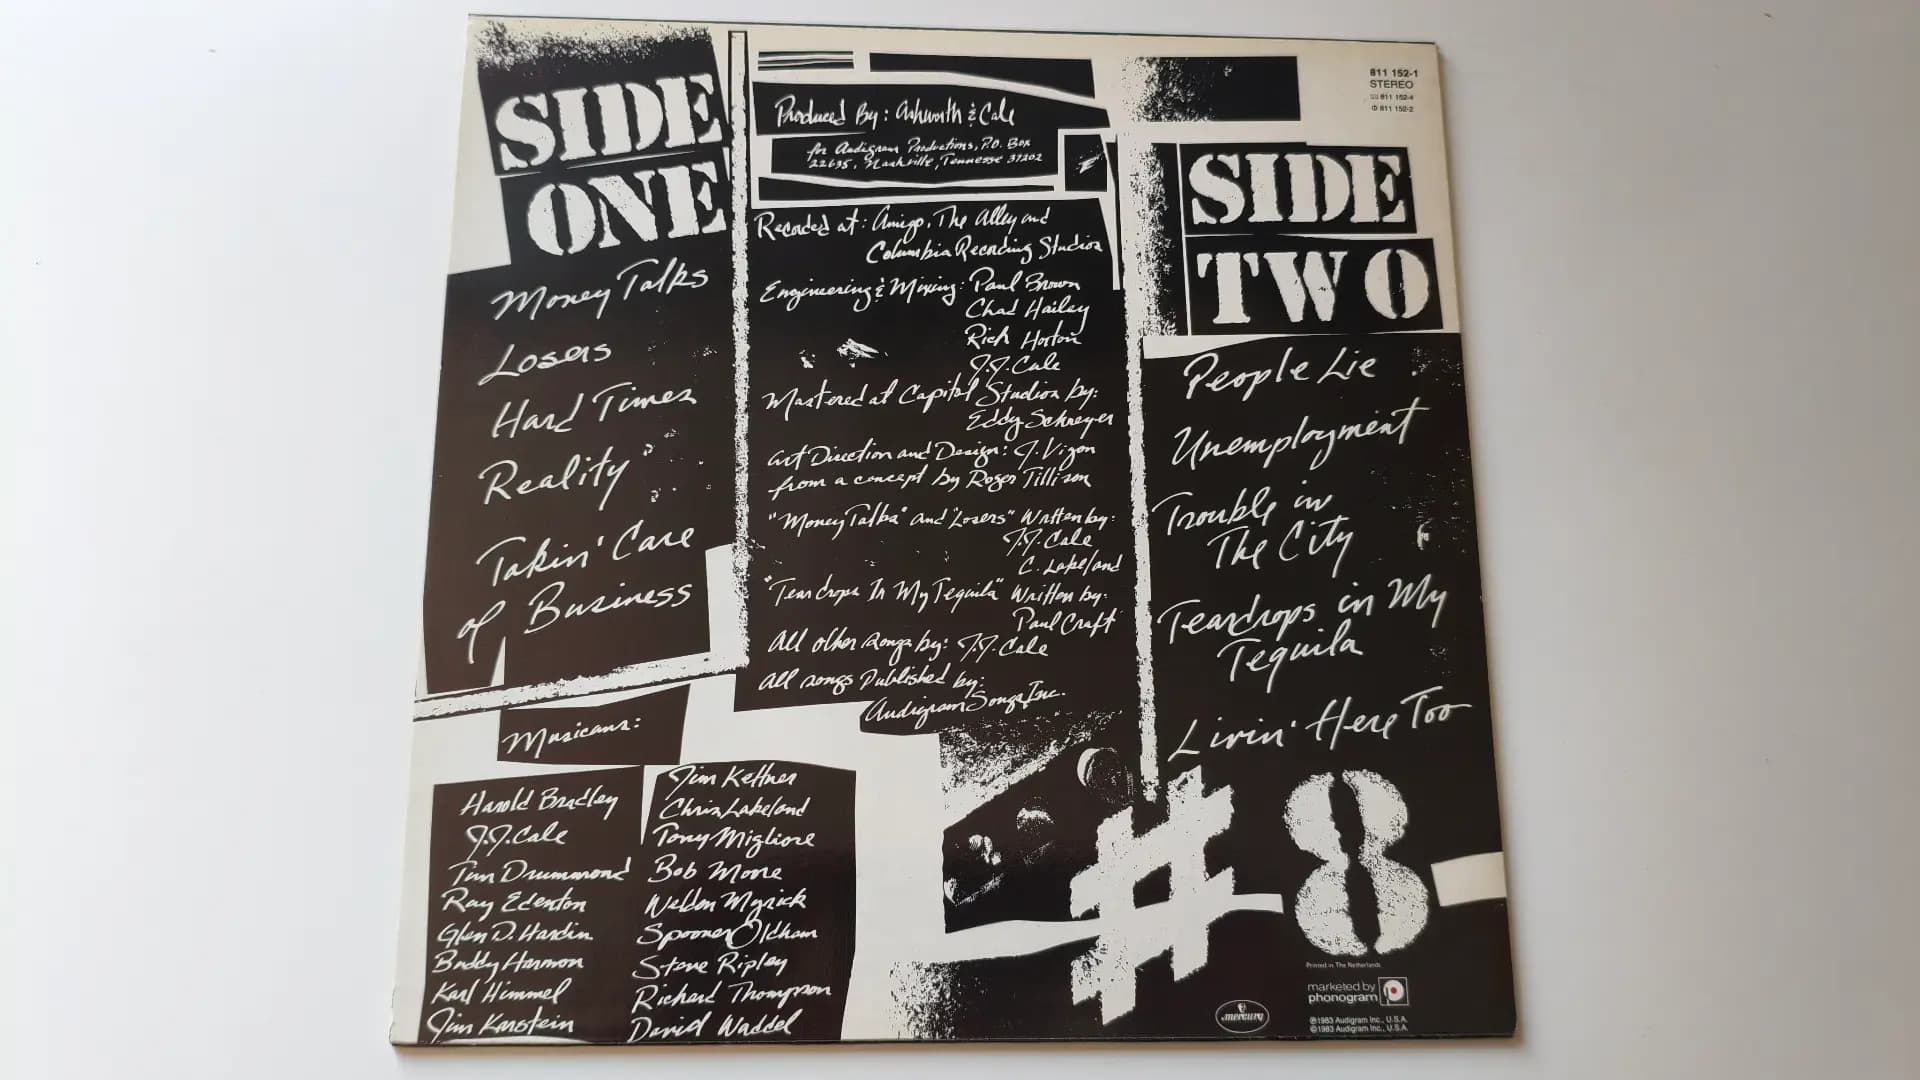 SIDE
ONE
Money Talks
Losers
Hard Times
Reality
Takin' Care
of Business
Produced By: Ashworth & Cale
for Audigram Productions, P.O. Box
22635, Nashville, Tennessee 37202
Recorded at: Amigo, The Alley and
Columbia Recording Studios
Engineering & Mixing: Paul Brown
Chad Hailey
Rich Horton
J.J. Cale
Mastered at Capitol Studios by:
Eddy Schreyer
Art Direction and Design: J. Vigon
from a concept by Roger Tillison
"Money Talks" and "Losers" Written by:
J.J. Cale
C. Lakeland
"Teardrops In My Tequila" Written by:
Paul Craft
All other songs by: J.J. Cale
All songs Published by:
Audigram Songs Inc.
811 152-1
STEREO
811 152-4
811 152-2
SIDE
TWO
People Lie
Unemployment
Trouble in
The City
Teardrops in My
Tequila
Livin' Here Too
Musicans:
Harold Bradley
J.J. Cale
Tim Drummond
Ray Edenton
Glen D. Hardin
Buddy Harmon
Karl Himmel
Jim Karstein
Jim Keltner
Chris Lakeland
Tony Migliore
Bob Moore
Weldon Myrick
Spooner Oldham
Steve Ripley
Richard Thompson
David Waddel
#8
Printed in The Netherlands
marketed by
phonogram
mercury
℗1983 Audigram Inc., U.S.A.
©1983 Audigram Inc., U.S.A.